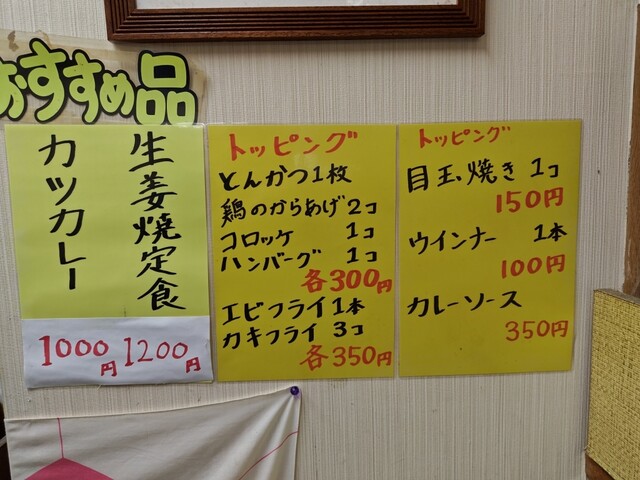 おすすめ品
生姜焼定食
1200円
カツカレー
1000円
トッピング
とんかつ1枚
鶏のからあげ2コ
コロッケ 1コ
ハンバーグ 1コ
各300円
エビフライ1本
カキフライ 3コ
各350円
トッピング
目玉焼き 1コ
150円
ウインナー 1本
100円
カレーソース
350円